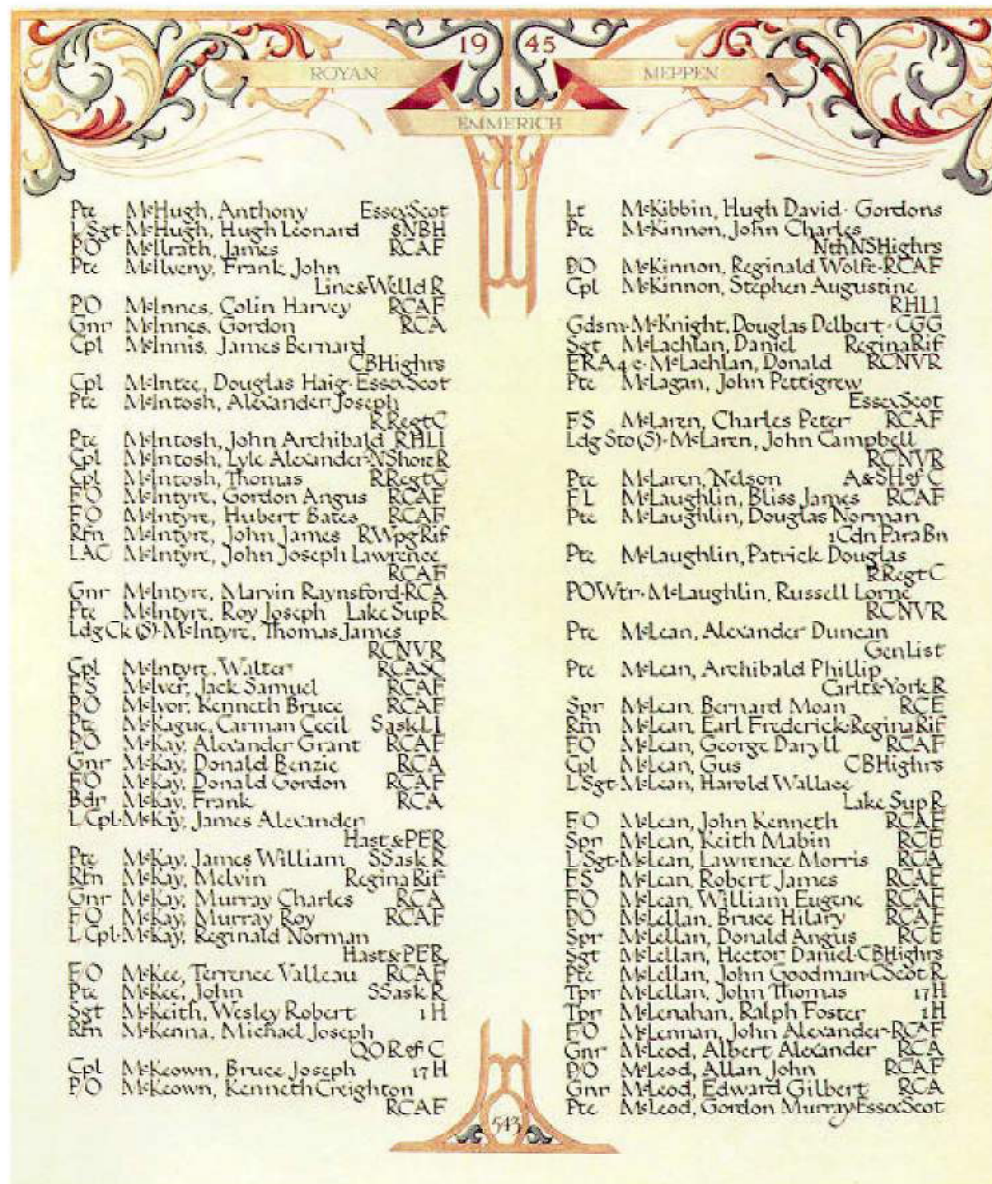 19 45
ROYAN
MEPPEN
EMMERICH
Pte McHugh, Anthony EssexScot
L/Sgt McHugh, Hugh Leonard 8NBH
P/O McIlrath, James RCAF
Pte McIlveny, Frank John
Linc&WelldR
P/O McInnes, Colin Harvey RCAF
Gnr McInnes, Gordon RCA
Cpl McInnis, James Bernard
CBHighrs
Cpl McIntee, Douglas Haig·EssexScot
Pte McIntosh, Alexander Joseph
RRegtC
Pte McIntosh, John Archibald RHLI
Cpl McIntosh, Lyle Alexander·NShoreR
Cpl McIntosh, Thomas RRegtC
F/O McIntyre, Gordon Angus RCAF
F/O McIntyre, Hubert Bates RCAF
Rfn McIntyre, John James RWpgRif
LAC McIntyre, John Joseph Lawrence
RCAF
Gnr McIntyre, Marvin Raynsford·RCA
Pte McIntyre, Roy Joseph LakeSupR
LdgCk(S)·McIntyre, Thomas James
RCNVR
Cpl McIntyre, Walter RCASC
FS McIver, Jack Samuel RCAF
P/O McIvor, Kenneth Bruce RCAF
Pte McKague, Carman Cecil SaskLI
P/O McKay, Alexander Grant RCAF
Gnr McKay, Donald Benzie RCA
F/O McKay, Donald Gordon RCAF
Bdr McKay, Frank RCA
L/Cpl·McKay, James Alexander
Hast&PER
Pte McKay, James William SSaskR
Rfn McKay, Melvin ReginaRif
Gnr McKay, Murray Charles RCA
F/O McKay, Murray Roy RCAF
L/Cpl·McKay, Reginald Norman
Hast&PER
F/O McKee, Terrence Valleau RCAF
Pte McKee, John SSaskR
Sgt McKeith, Wesley Robert 1H
Rfn McKenna, Michael Joseph
QORofC
Cpl McKeown, Bruce Joseph 17H
P/O McKeown, Kenneth Creighton
RCAF
Lt McKibbin, Hugh David·Gordons
Pte McKinnon, John Charles
NthNSHighrs
P/O McKinnon, Reginald Wolfe·RCAF
Cpl McKinnon, Stephen Augustine
RHLI
Gdsm·McKnight, Douglas Delbert·CGG
Sgt McLachlan, Daniel ReginaRif
ERA4c·McLachlan, Donald RCNVR
Pte McLagan, John Pettigrew
EssexScot
FS McLaren, Charles Peter RCAF
LdgSto(S)·McLaren, John Campbell
RCNVR
Pte McLaren, Nelson A&SHofC
FL McLaughlin, Bliss James RCAF
Pte McLaughlin, Douglas Norman
1CdnParaBn
Pte McLaughlin, Patrick Douglas
RRegtC
POWtr·McLaughlin, Russell Lorne
RCNVR
Pte McLean, Alexander Duncan
GenList
Pte McLean, Archibald Phillip
Carlt&YorkR
Spr McLean, Bernard Moan RCE
Rfn McLean, Earl Frederick·ReginaRif
F/O McLean, George Daryll RCAF
Cpl McLean, Gus CBHighrs
L/Sgt·McLean, Harold Wallace
LakeSupR
F/O McLean, John Kenneth RCAF
Spr McLean, Keith Mabin RCE
L/Sgt·McLean, Lawrence Morris RCA
FS McLean, Robert James RCAF
F/O McLean, William Eugene RCAF
P/O McLellan, Bruce Hilary RCAF
Spr McLellan, Donald Angus RCE
Sgt McLellan, Hector Daniel·CBHighrs
Pte McLellan, John Goodman·CScotR
Tpr McLellan, John Thomas 17H
Tpr McLenahan, Ralph Foster 1H
F/O McLennan, John Alexander·RCAF
Gnr McLeod, Albert Alexander RCA
P/O McLeod, Allan John RCAF
Gnr McLeod, Edward Gilbert RCA
Pte McLeod, Gordon Murray·EssexScot
543